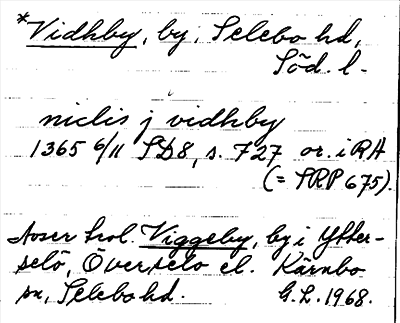 *Vidhby, by, Selebo hd,
Söd. l.
niclis j vidhby
1365 6/11 SD8, s. 727 or. i RA
(= SRP 675).
Avser trol. Viggeby, by i Ytter-
selö, Överselö el. Kärnbo
sn, Selebo hd. G.L. 1968.